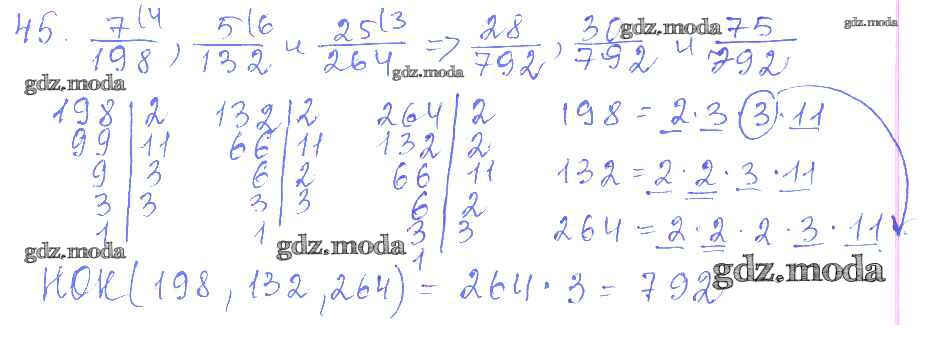 45. 7(4/198, 5(6/132 и 25(3/264 => 28/792, 30/792 и 75/792
gdz.moda gdz.moda gdz.moda gdz.moda
198 | 2 132 | 2 264 | 2 198 = 2 · 3 · 3 · 11
99 | 11 66 | 11 132 | 2
9 | 3 6 | 2 66 | 11 132 = 2 · 2 · 3 · 11
3 | 3 3 | 3 6 | 2
1 1 3 | 3 264 = 2 · 2 · 2 · 3 · 11
1
gdz.moda gdz.moda gdz.moda
НОК(198, 132, 264) = 264 · 3 = 792